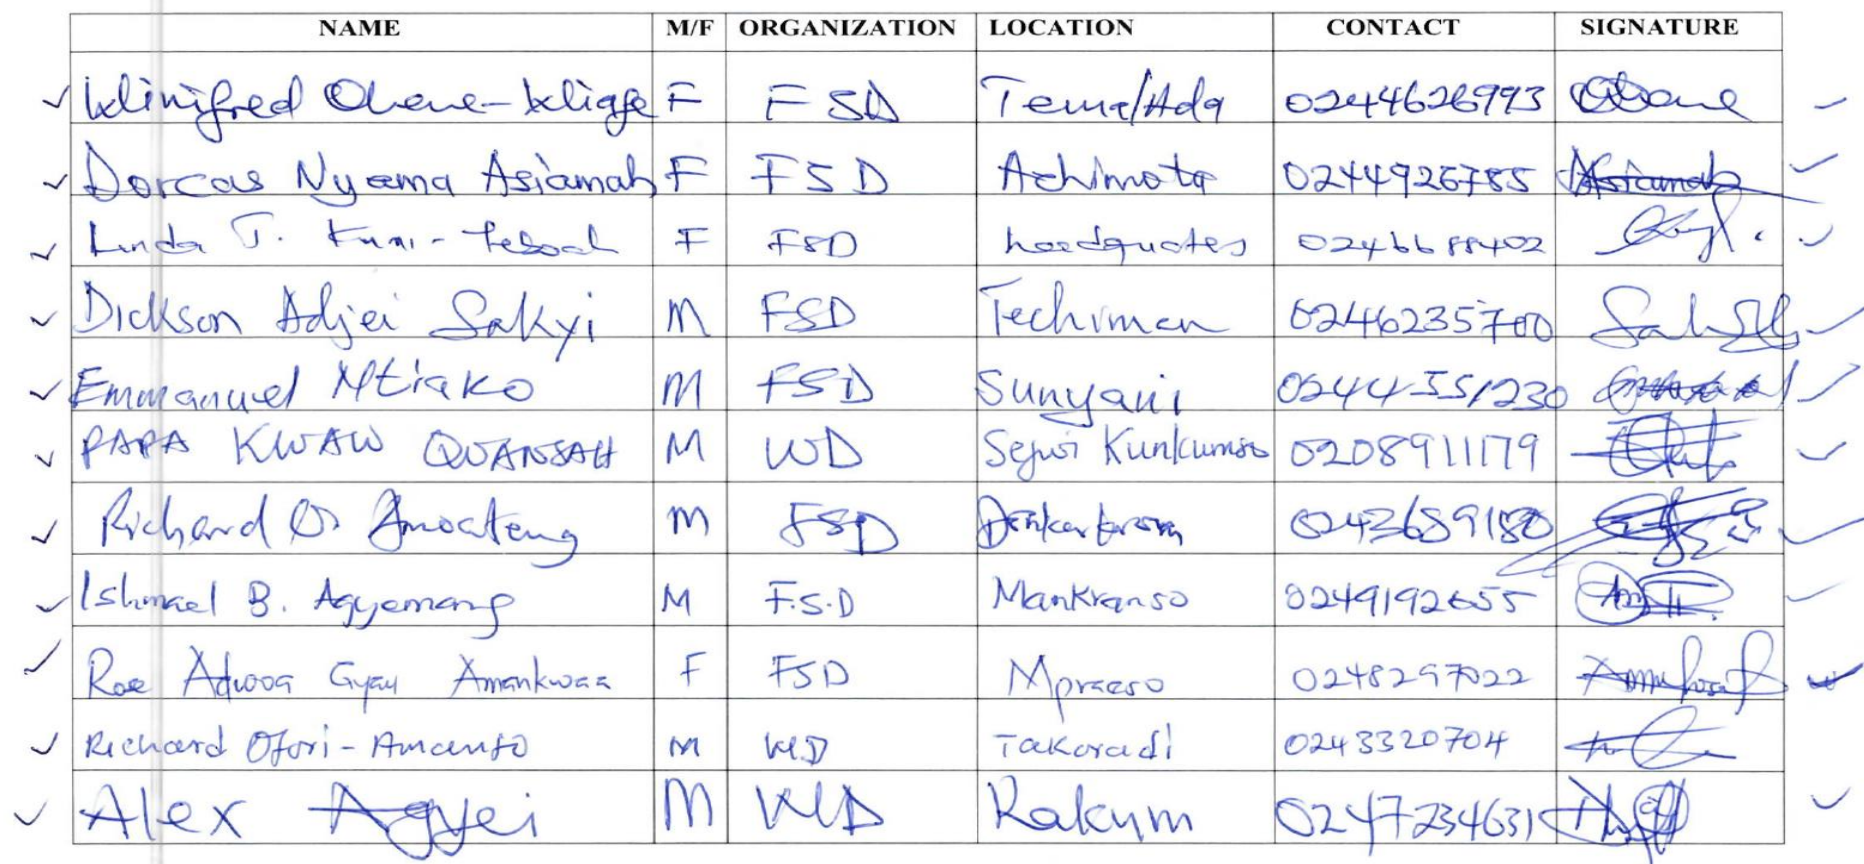 NAME M/F ORGANIZATION LOCATION CONTACT SIGNATURE
Winifred Ohene-Wiafe F FSD Tema/Ada 0244626993 Ohene
Dorcas Nyama Asiamah F FSD Achimota 0244926785 Asiamah
Linda T. F FSD headquates 0246688402
Dickson Adjei Sakyi M FSD Techiman 0246235700
Emmanuel Ntiako M FSD Sunyani 0244551230
PAPA KWAW QUANSAH M WD Sefwi Kunkumso 0208911179
Richard O. Amoateng M FSD 0243689180
Ishmael B. Agyemang M F.S.D Mankranso 0249192655
Roe Adwoa Gyau Amankwaa F FSD Mpraeso 0248297022
Richard Ofori-Amanfo M WD Takoradi 0243320704
Alex Agyei M WD Kakum 0247234631